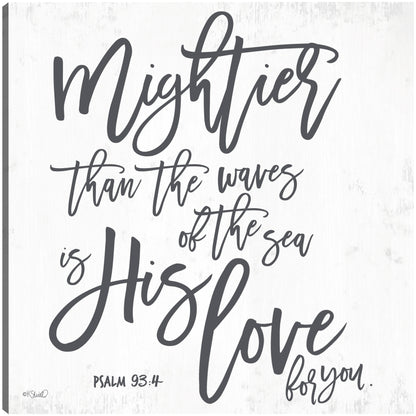 Mightier
than the waves
of the sea
is His
love
for you.
PSALM 93:4